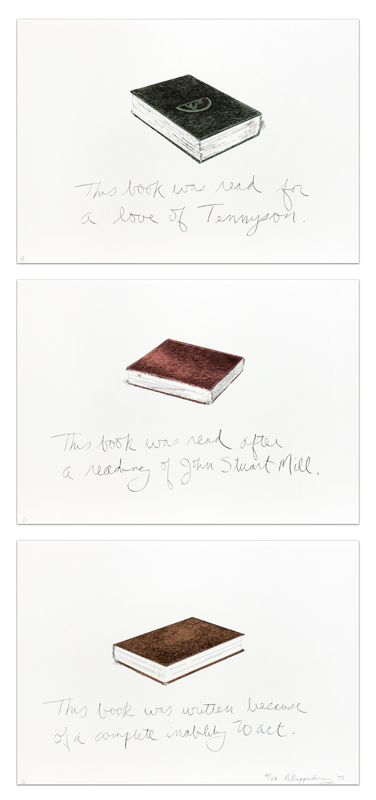 This book was read for
a love of Tennyson.
This book was read after
a reading of John Stuart Mill.
This book was written because
of a complete inability to act.
'72